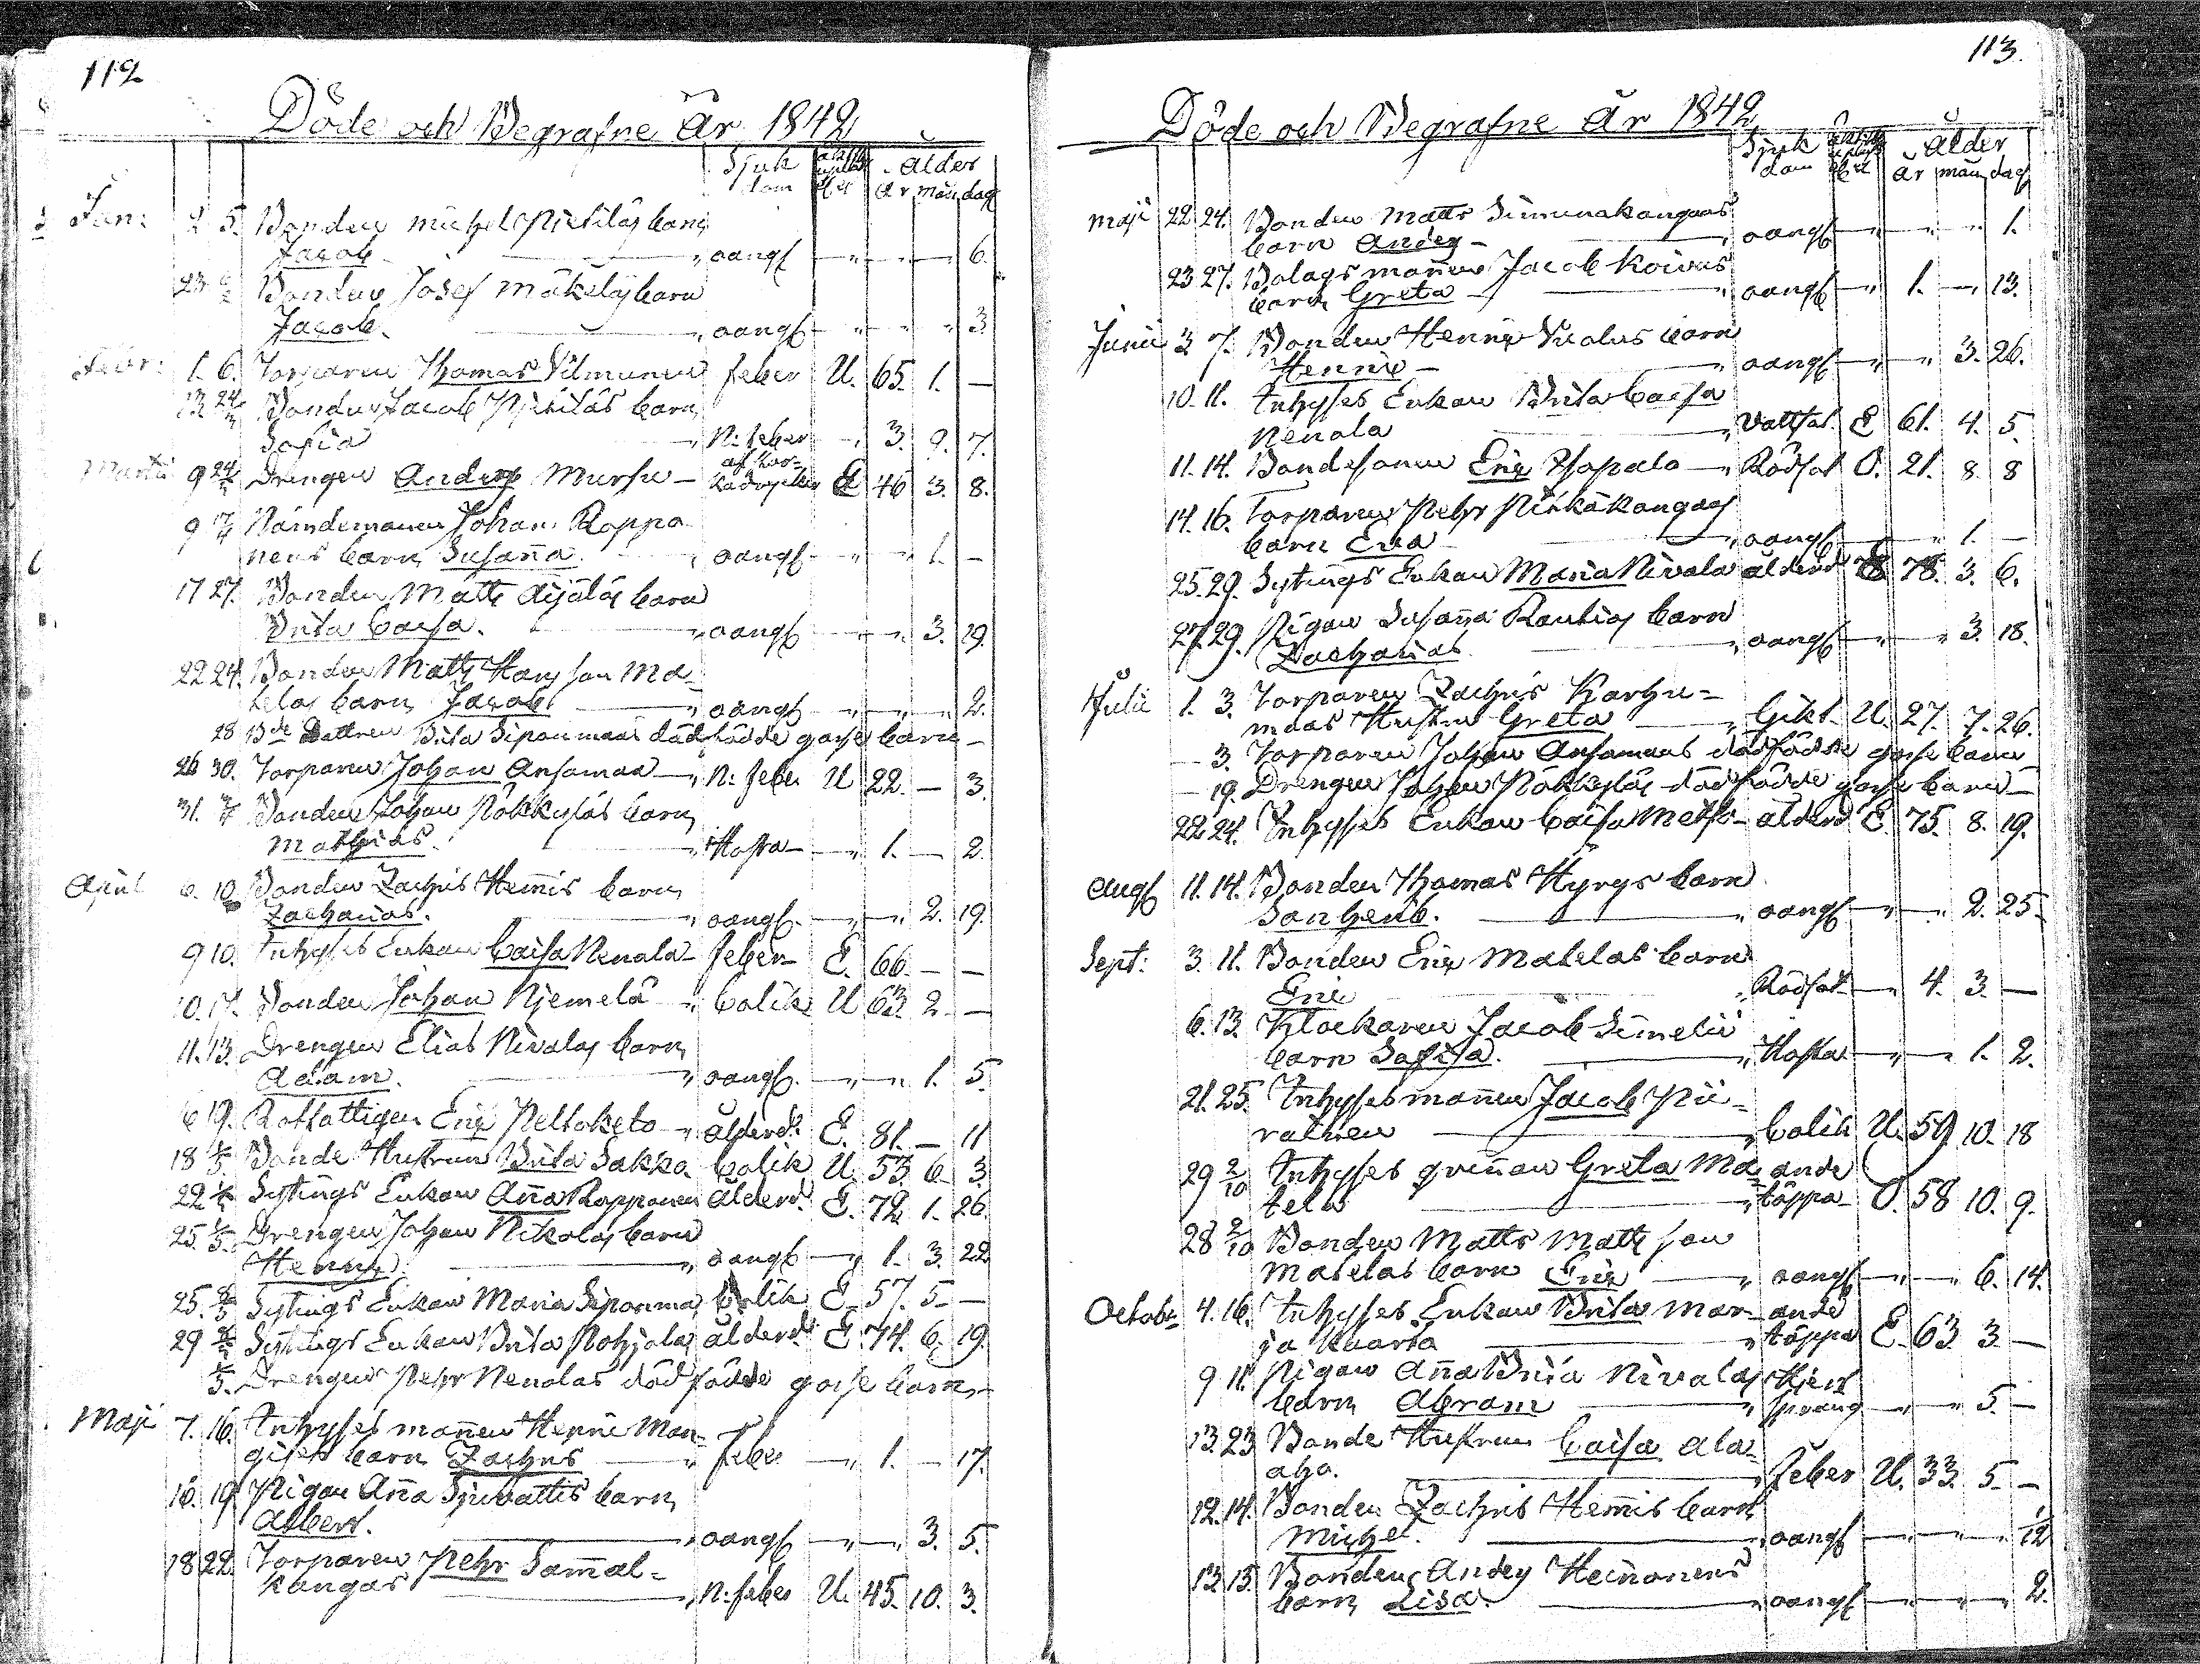 112
Döde och Begrafne År 1842
Sjuk dom Ålder
År mån dag
Jan: 2 5. Bonden Michel Pietiläs barn
Jacob. oangf 6.
23 Bonden Josef Mäkeläs barn
Jacob. oangf 3
Febr: 1. 6. Torparen Thomas Vilmunen feber U. 65. 1. —
13 Bonden Jacob Pietiläs barn
Sofia N: feber 3. 9. 7.
Martii 9 Drengen Anders Mursu E 46 3. 8.
9 Nämndemannen Johan Roppo
nens barn Susanna. oangf 1. —
17 27. Bonden Matts Äijäläs barn
Brita Caisa. oangf 3. 19.
22 24. Bonden Matts Hansson Ma-
telas barn Jacob oangf 2.
28 Bde Dottren Brita Siponmaas dödfödde gosse barn —
26 30. Torparen Johan Ansamaa N: feber U 22. — 3.
31. Bonden Johan Pökkyläs barn
Mathias. Hosta 1. — 2.
April 6. 10 Bonden Zachris Hemmis barn
Zacharias. oangf. 2. 19.
9 10. Inhyses Enkan Caisa Nenala feber E. 66 — —
10. 17. Bonden Johan Njemelä Colik U 63 2 —
11. 13. Drengen Elias Nivalas barn
Adam. oangf. 1. 5.
6 19. Rotfattigen Eric Peltoketo ålderd. E. 81. — 11
18 Bonde Hustrun Brita Sakko Colik U. 53 6 3.
22 Sytnings Enkan Anna Ropponen ålderd. E. 72 1. 26.
25 Drengen Johan Nikolas barn
Henric. oangf 1. 3. 22
25. Sytnings Enkan Maria Siponma Colik E. 57. 5. —
29 Sytnings Enkan Brita Pohjola ålderd. E. 74. 6. 19.
Drengen Pehr Nenolas dödfödde gosse barn —
Maji 7. 16. Inhyses mannen Henric Man-
gises barn Zachris feber 1. — 17.
16. 19 Pigan Anna Sjuvattis barn
Albert. oangf 3. 5.
18 22. Torparen Pehr Sammal-
kangas N: feber U. 45. 10. 3.
113.
Döde och Begrafne År 1842
Sjuk dom Ålder
År mån dag
Maji 22 24. Bonden Matts Simunakangas
barn Anders oangf 1.
23 27. Bolagsmannen Jacob Koivus
barn Greta oangf 1. — 13.
Junii 3 7. Bonden Henric Vuolus barn
Henric oangf 3. 26.
10. 11. Inhyses Enkan Brita Caisa
Nenola Vattsot E 61. 4. 5.
11. 14. Bondesonen Eric Isopalo Rödsot O. 21. 8. 8
14. 16. Torparen Pehr Pitkäkangas
barn Eva oangf 1. —
25. 29. Sytnings Enkan Maria Nivala ålderd 78. 3. 6.
27 29. Pigan Susanna Rautios barn
Zacharias oangf 3. 18.
Julii 1. 3. Torparen Zachris Karhu-
maas Hustru Greta Gikt. U. 27. 7. 26.
— 3. Torparen Johan Ansamaas dödfödde gosse barn —
— 19. Drengen Johan Pökkyläs dödfödde gosse barn —
22 24. Inhyses Enkan Caisa Mets- ålderd E. 75. 8. 19.
Augs 11. 14. Bonden Thomas Hyrys barn
oangf 2. 25
Sept: 3. 11. Bonden Eric Matelas barn
Eric Rödsot 4. 3. —
6. 13. Klockaren Jacob Simelii
barn Sofia. Hosta 1. 2.
21. 25. Inhyses mannen Jacob Pii-
rainen Colik U. 59 10. 18
29 2/10 Inhyses qvinnan Greta Ma- ande
tela täppa O. 58 10. 9.
28 2/10 Bonden Matts Matts son
Matelas barn Eric oangf 6. 14.
Octobr 4. 16. Inhyses Enkan Brita Mar- ande
ja Kaarta täppa E. 63 3. —
9 11. Pigan Anna Brita Nivalas
barn Abram 5. —
13. 23 Bonde Hustrun Caisa Ala-
aho. feber U. 33. 5. —
12. 14. Bonden Zachris Hemmis barn
Michel. oangf 1/12
13. 15. Bonden Anders Heinonens
barn Lisa. oangf 2.